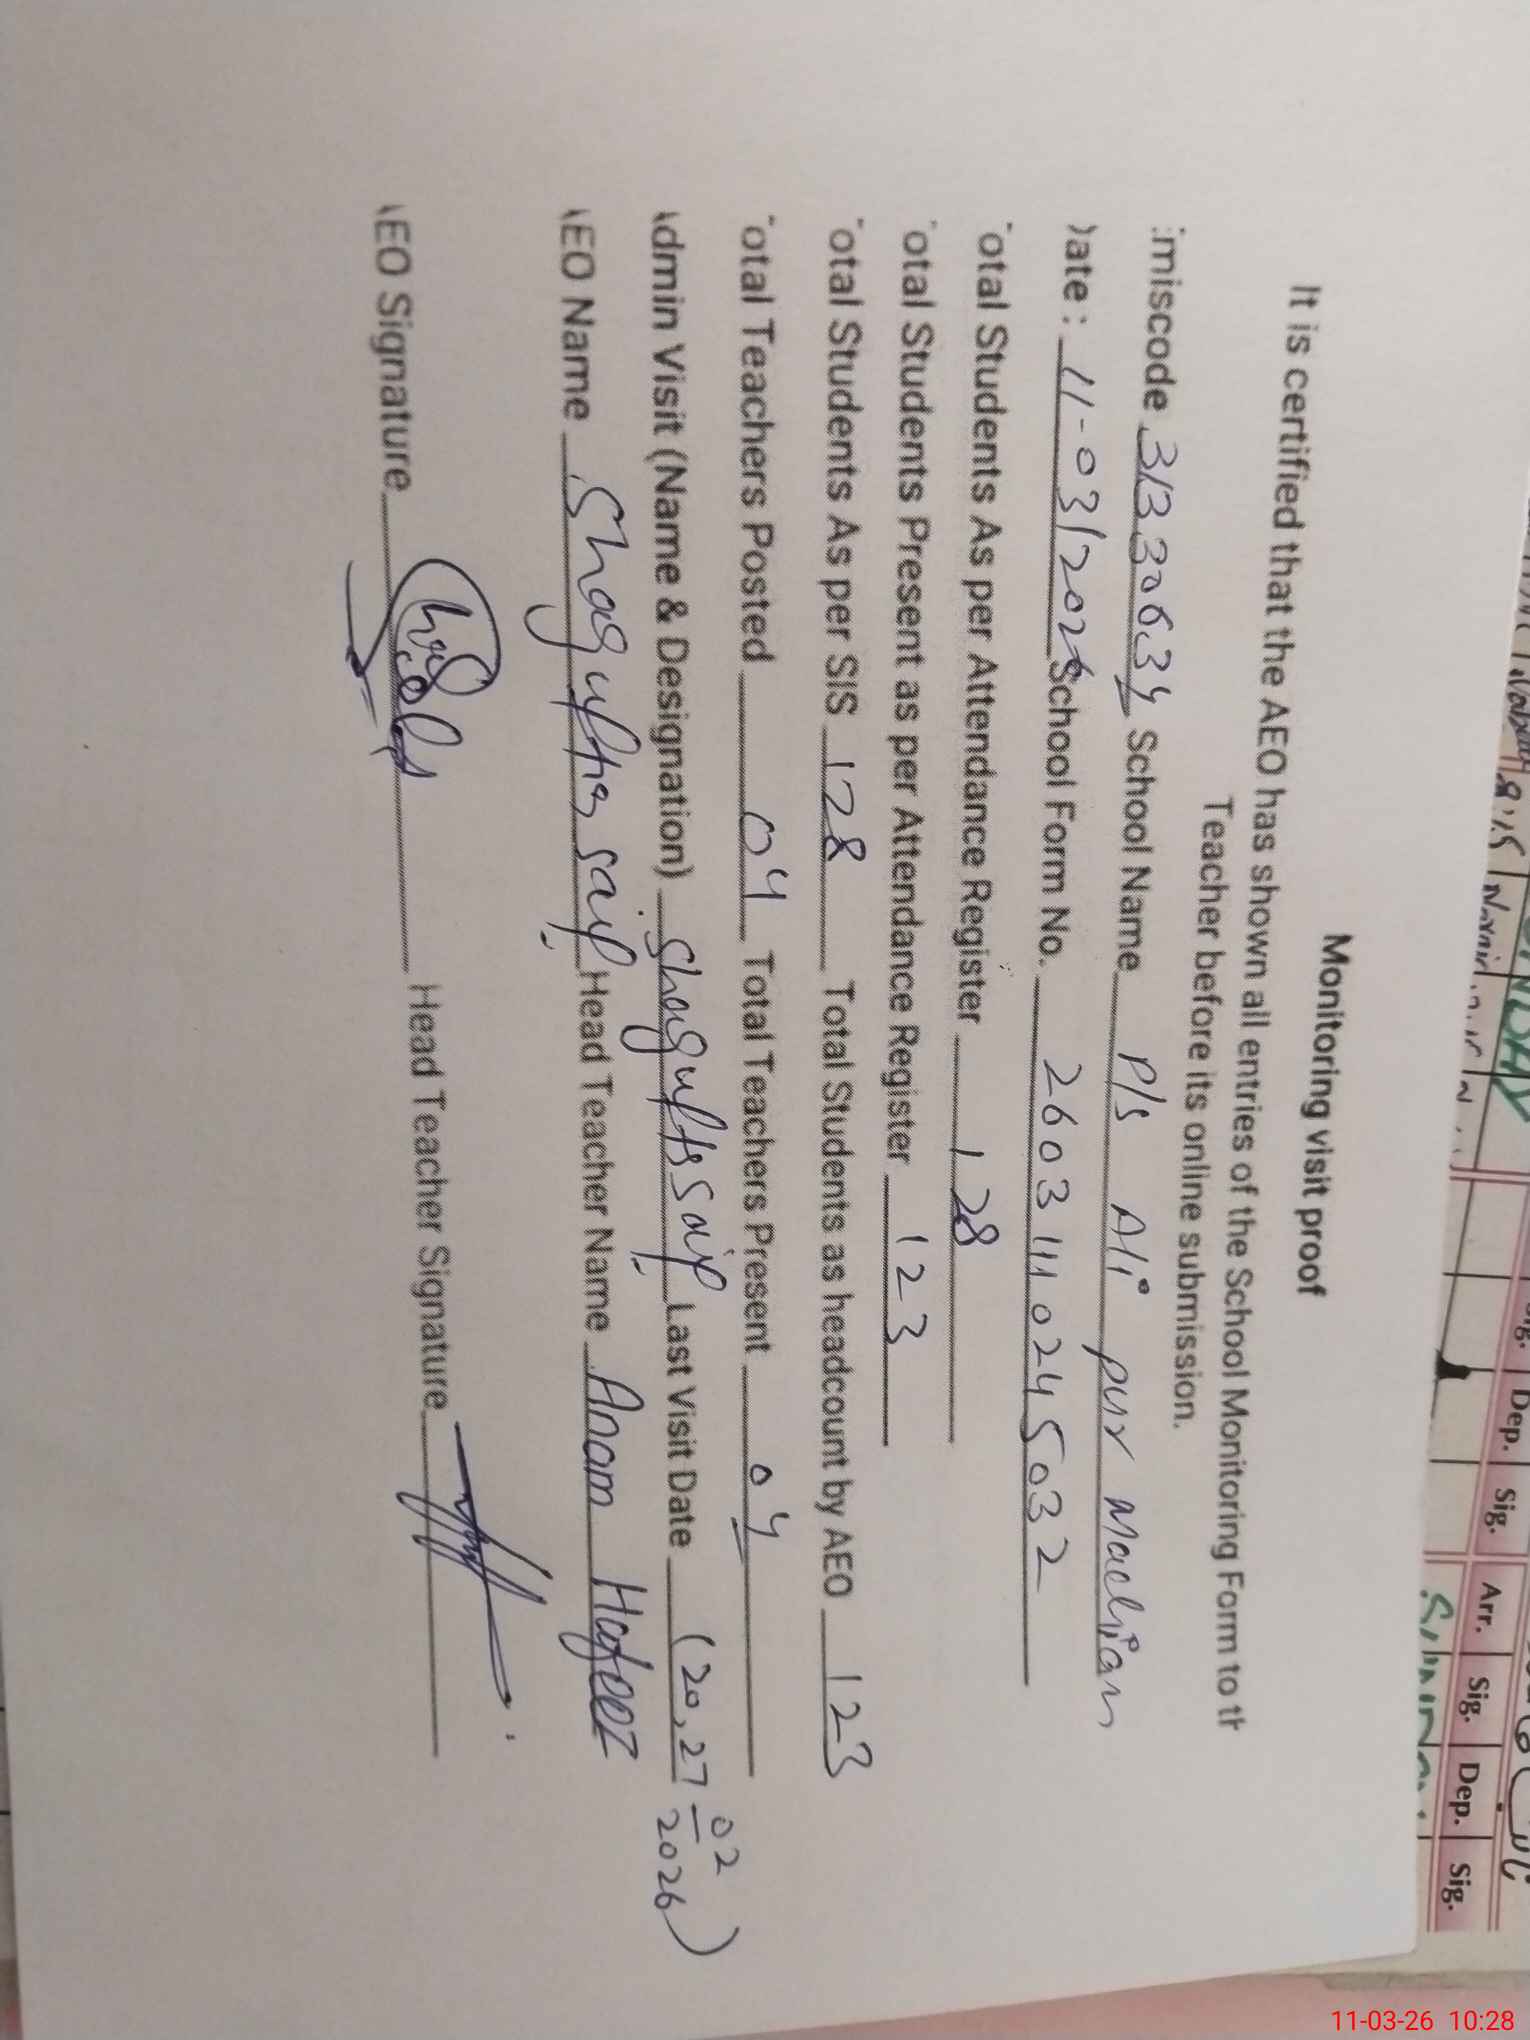 Monitoring visit proof
It is certified that the AEO has shown all entries of the School Monitoring Form to th
Teacher before its online submission.
miscode 31330634 School Name P/s Ali pur Machian
ate : 11-03/2026 School Form No. 26031110245032
otal Students As per Attendance Register 128
otal Students Present as per Attendance Register 123
otal Students As per SIS 128 Total Students as headcount by AEO 123
otal Teachers Posted 04 Total Teachers Present 04
dmin Visit (Name & Designation) Shagufta saif Last Visit Date (20,27 02 2026)
EO Name Shagufta saif Head Teacher Name Anam Hafeez
EO Signature Head Teacher Signature
Sig. Dep. Sig. Arr. Sig. Dep. Sig.
11-03-26 10:28